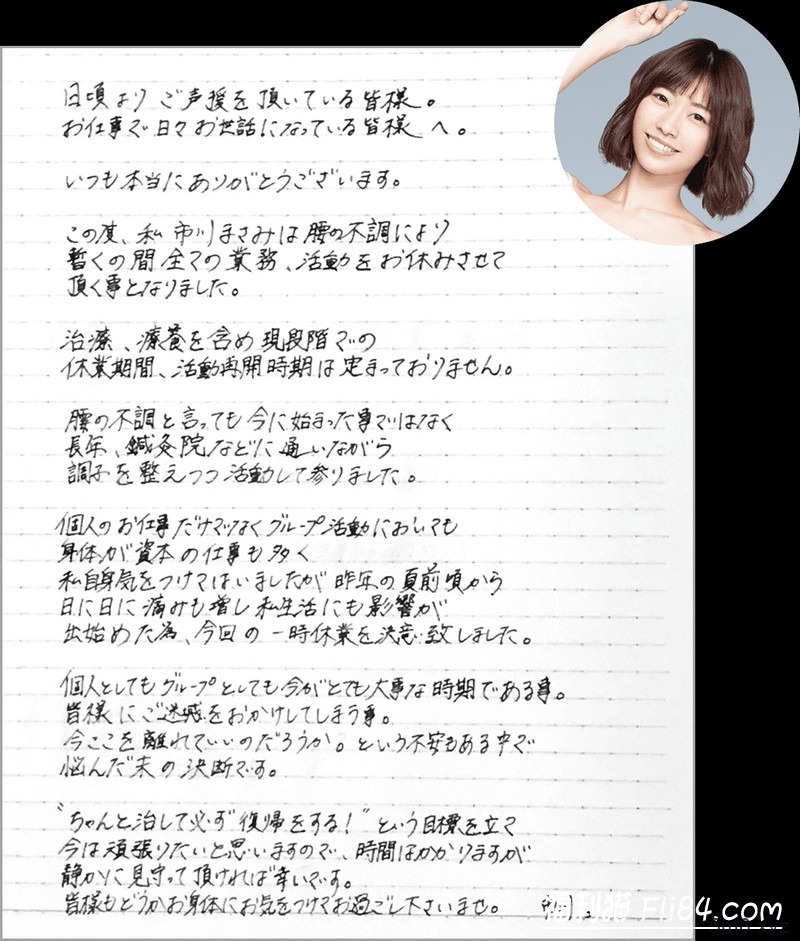 日頃よりご声援を頂いている皆様。
お仕事で日々お世話になっている皆様へ。
いつも本当にありがとうございます。
この度、私 市川まさみは腰の不調により
暫くの間全ての業務、活動をお休みさせて
頂く事となりました。
治療、療養を含め現段階での
休業期間、活動再開時期は定まっておりません。
腰の不調と言っても今に始まった事ではなく
長年、鍼灸院などに通いながら
調子を整えつつ活動して参りました。
個人のお仕事だけでなくグループ活動においても
身体が資本の仕事も多く
私自身気をつけてはいましたが昨年の夏前頃から
日に日に痛みも増し私生活にも影響が
出始めた為、今回の一時休業を決意致しました。
個人としてもグループとしても今がとても大事な時期である事。
皆様にご迷惑をおかけしてしまう事。
今ここを離れていいのだろうか。という不安もある中で
悩んだ末の決断です。
"ちゃんと治して必ず復帰をする!"という目標を立て
今は頑張りたいと思いますので、時間はかかりますが
静かに見守って頂ければ幸いです。
皆様もどうかお身体にお気をつけてお過ごし下さいませ。
福利獵 Fli84.com